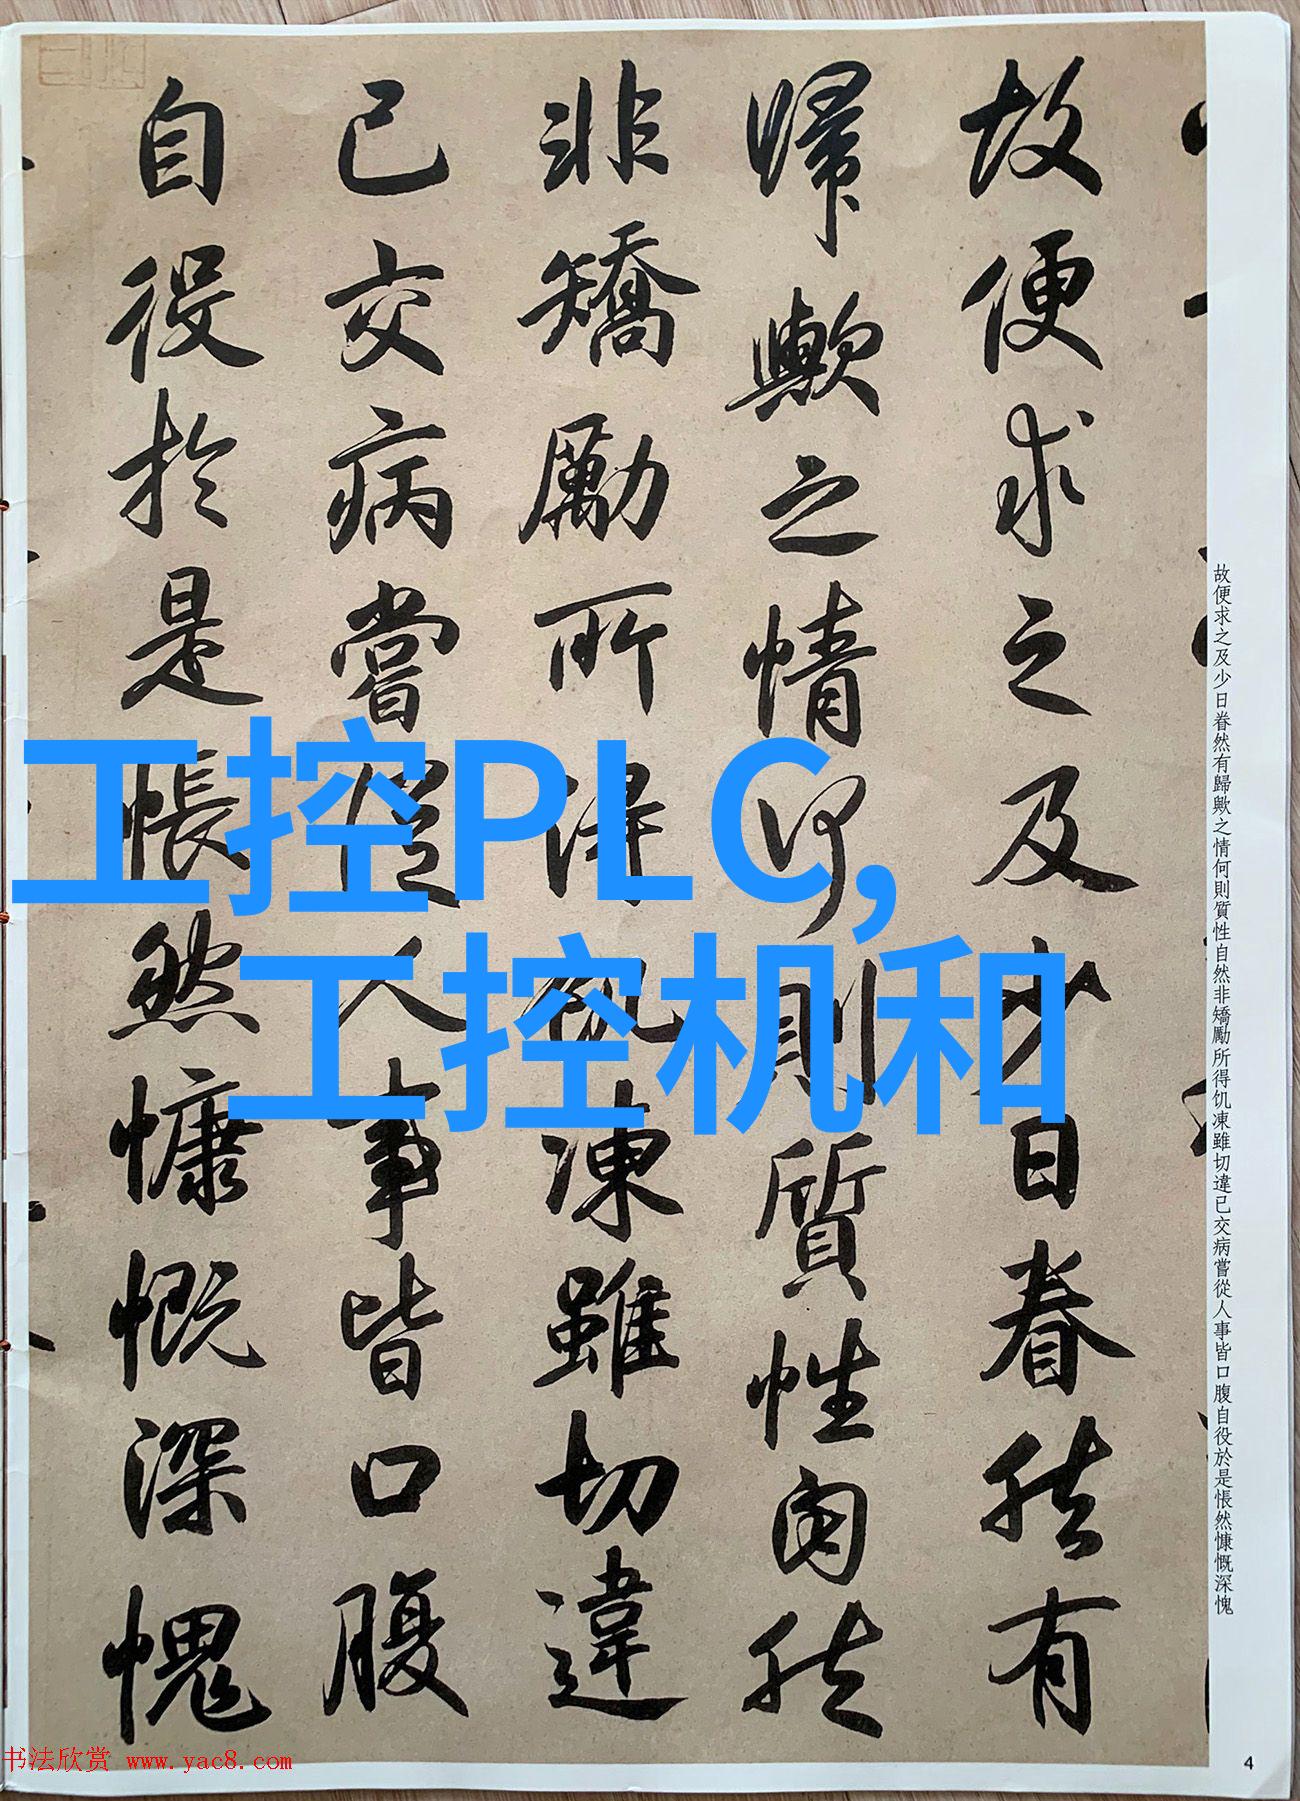 故便求之及少日眷然有
歸歟之情何則質性自然
非矯勵所得飢凍雖切違
已交病嘗從人事皆口腹
自役於是悵然慷慨深愧
故便求之及少日眷然有歸歟之情何則質性自然非矯勵所得饥凍雖切違已交病嘗從人事皆口腹自役於是悵然慷慨深愧
工控PLC,
工控机和
书法欣赏 www.yac8.com
4